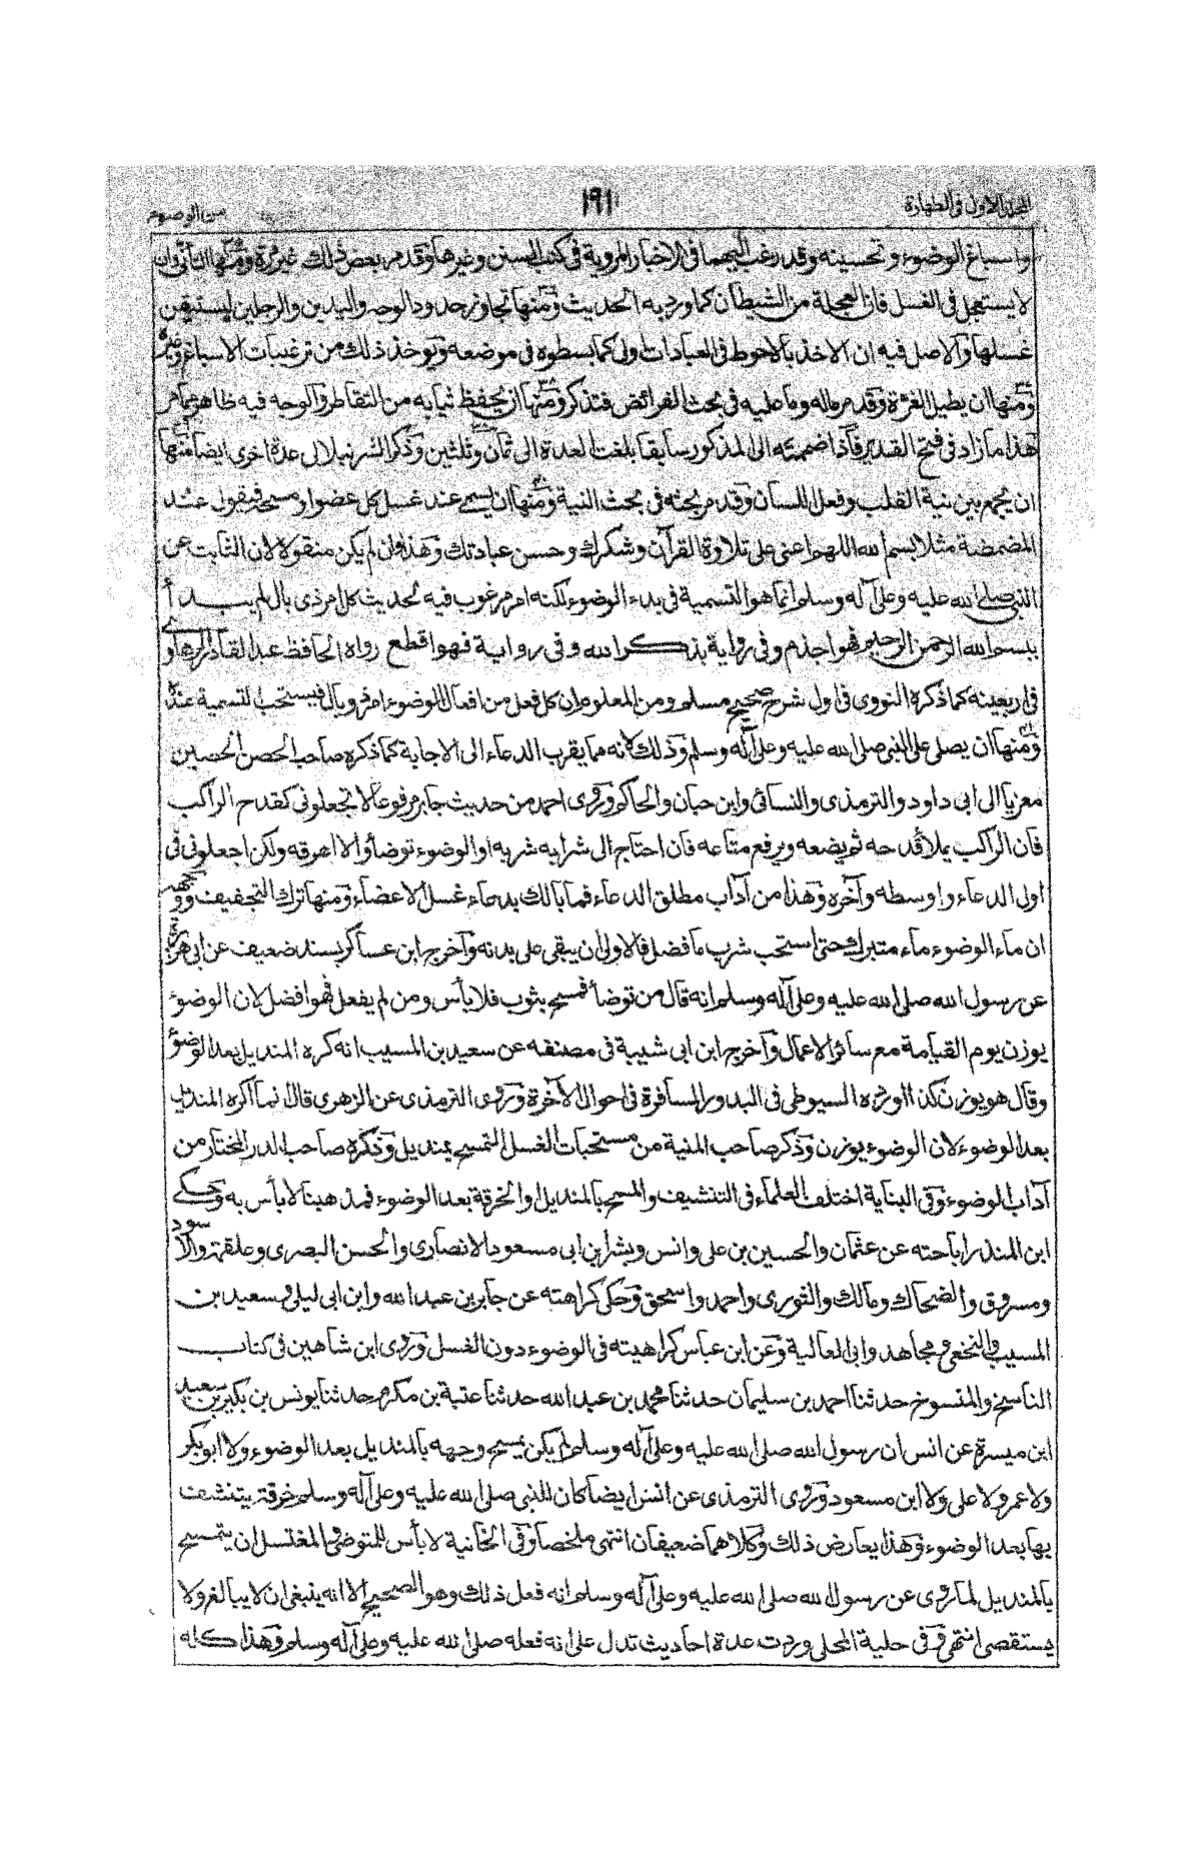 المجلد الاول فی الطهارة
١٩١
من الوضوء
واسباغ الوضوء وتحسینه وقد رغب الیهما فی الاخبار المرویة فی کتب السنن وغیرها وقد مر بعض ذلك غیر مرة ومنها التأنی وان
لا یستعجل فی الغسل فان العجلة من الشیطان کما ورد به الحدیث ومنها تجاوز حدود الوجه والیدین والرجلین لیستیقن
غسلها والاصل فیه ان الاخذ بالاحوط فی العبادات اولی کما بسطوه فی موضعه ویوخذ ذلك من ترغیبات الاسباغ
ومنها ان یطیل الغرة وقد مر ماله وما علیه فی بحث الفرائض فتذکر ومنها ان یحفظ ثیابه من التقاطر والوجه فیه ظاهر
هذا ما زاد فی فتح القدیر فاذا ضممته الی المذکور سابقا بلغت العدة الی ثمان وثلثین وذکر الشرنبلالی عدة اخری ایضا منها
ان یجمع بین نیة القلب وفعل اللسان وقد مر بحثه فی بحث النیة ومنها ان یسمی عند غسل کل عضو او مسحه فیقول عند
المضمضة مثلا بسم الله اللهم اعنی علی تلاوة القرآن وشکرك وحسن عبادتك وهذا وان لم یکن منقولا لان الثابت عن
النبی صلی الله علیه وعلی آله وسلم انما هو التسمیة فی بدء الوضوء لکنه امر مرغوب فیه لحدیث کل امر ذی بال لم یبدأ
ببسم الله الرحمن الرحیم فهو اجذم وفی روایة بذکر الله وفی روایة فهو اقطع رواه الحافظ عبد القادر الرهاوی
فی اربعینه کما ذکره النووی فی اول شرح صحیح مسلم ومن المعلوم ان کل فعل من افعال الوضوء امر ذو بال فیستحب التسمیة عنده
ومنها ان یصلی علی النبی صلی الله علیه وعلی آله وسلم وذلك لانه مما یقرب الدعاء الی الاجابة کما ذکره صاحب الحصن الحصین
معزیا الی ابی داود والترمذی والنسائی وابن حبان والحاکم وروی احمد من حدیث جابر مرفوعا لا تجعلونی کقدح الراکب
فان الراکب یملأ قدحه ثم یضعه ویرفع متاعه فان احتاج الی شرابه شربه او الوضوء توضأ والا اهرقه ولکن اجعلونی فی
اول الدعاء واوسطه وآخره وهذا من آداب مطلق الدعاء فما بالك بدعاء غسل الاعضاء ومنها ترك التجفیف ووجهه
ان ماء الوضوء ماء متبرك حتی استحب شرب ما فضل فالاولی ان یبقی علی بدنه وآخرج ابن عساکر بسند ضعیف عن ابی هریرة
عن رسول الله صلی الله علیه وعلی آله وسلم انه قال من توضأ فمسح بثوب فلا بأس ومن لم یفعل فهو افضل لان الوضوء
یوزن یوم القیامة مع سائر الاعمال وآخرج ابن ابی شیبة فی مصنفه عن سعید بن المسیب انه کره المندیل بعد الوضوء
وقال هو یوزن کذا اورده السیوطی فی البدور السافرة فی احوال الآخرة وروی الترمذی عن الزهری قال انما اکره المندیل
بعد الوضوء لان الوضوء یوزن وذکر صاحب المنیة من مستحبات الغسل التمسح بمندیل وذکره صاحب الدر المختار من
آداب الوضوء وفی البنایة اختلف العلماء فی التنشیف والمسح بالمندیل او الخرقة بعد الوضوء فمذهبنا لا بأس به وحکی
ابن المنذر اباحته عن عثمان والحسین بن علی وانس وبشر ابن ابی مسعود الانصاری والحسن البصری وعلقمة والاسود
ومسروق والضحاك ومالك والثوری واحمد واسحق وحکی کراهته عن جابر بن عبد الله وابن ابی لیلی وسعید بن
المسیب والنخعی ومجاهد وابی العالیة وعن ابن عباس کراهیته فی الوضوء دون الغسل وروی ابن شاهین فی کتاب
الناسخ والمنسوخ حدثنا احمد بن سلیمان حدثنا محمد بن عبد الله حدثنا عتبة بن مکرم حدثنا یونس بن بکیر بن سعید
ابن میسرة عن انس ان رسول الله صلی الله علیه وعلی آله وسلم لم یکن یمسح وجهه بالمندیل بعد الوضوء ولا ابو بکر
ولا عمر ولا علی ولا ابن مسعود وروی الترمذی عن انس ایضا کان للنبی صلی الله علیه وعلی آله وسلم خرقة یتنشف
بها بعد الوضوء وهذا یعارض ذلك وکلاهما ضعیفان انتهی ملخصا وفی الخانیة لا بأس للمتوضی والمغتسل ان یتمسح
بالمندیل لما روی عن رسول الله صلی الله علیه وعلی آله وسلم انه فعل ذلك وهو الصحیح الا انه ینبغی ان لا یبالغ ولا
یستقصی انتهی وفی حلیة المحلی وردت عدة احادیث تدل علی انه فعله صلی الله علیه وعلی آله وسلم وهذا کله